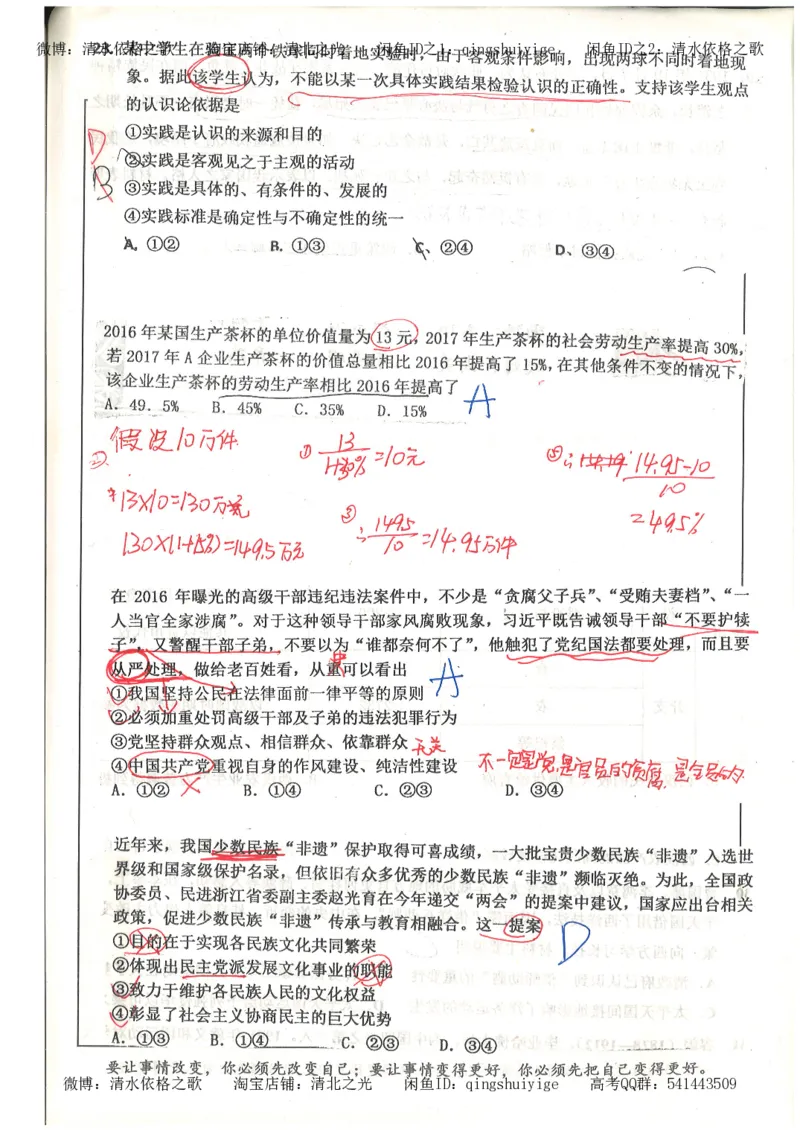 微博：清水依格之歌 淘宝店铺：清北之光 闲鱼ID之1：qingshuiyige 闲鱼ID之2：清水依格之歌
23. 某中学生在验证两个铁球同时着地实验时，由于客观条件影响，出现两球不同时着地现
象。据此该学生认为，不能以某一次具体实践结果检验认识的正确性。支持该学生观点
的认识论依据是
①实践是认识的来源和目的
D
②实践是客观见之于主观的活动
B
③实践是具体的、有条件的、发展的
④实践标准是确定性与不确定性的统一
A. ①② B. ①③ C、②④ D、③④
2016 年某国生产茶杯的单位价值量为 13 元，2017 年生产茶杯的社会劳动生产率提高 30%，
若 2017 年 A 企业生产茶杯的价值总量相比 2016 年提高了 15%，在其他条件不变的情况下，
该企业生产茶杯的劳动生产率相比 2016 年提高了
A. 49.5% B. 45% C. 35% D. 15% A
假设10万件
① 13/1+30%=10元
② 13×10=130万元
130×(1+15%)=149.5万元
③ ∴ 149.5/10=14.95万件
④∴ 14.95-10/10
=49.5%
在 2016 年曝光的高级干部违纪违法案件中，不少是“贪腐父子兵”、“受贿夫妻档”、“一
人当官全家涉腐”。对于这种领导干部家风腐败现象，习近平既告诫领导干部“不要护犊
子”，又警醒干部子弟，不要以为“谁都奈何不了”，他触犯了党纪国法都要处理，而且要
从严处理，做给老百姓看，从重可以看出
A
①我国坚持公民在法律面前一律平等的原则
②必须加重处罚高级干部及子弟的违法犯罪行为
③党坚持群众观点、相信群众、依靠群众 无关
④中国共产党重视自身的作风建设、纯洁性建设
A. ①② B. ①④ C. ②③ D. ③④
近年来，我国少数民族“非遗”保护取得可喜成绩，一大批宝贵少数民族“非遗”入选世
界级和国家级保护名录，但依旧有众多优秀的少数民族“非遗”濒临灭绝。为此，全国政
协委员、民进浙江省委副主委赵光育在今年递交“两会”的提案中建议，国家应出台相关
政策，促进少数民族“非遗”传承与教育相融合。这一提案
D
①目的在于实现各民族文化共同繁荣
②体现出民主党派发展文化事业的职能
③致力于维护各民族人民的文化权益
④彰显了社会主义协商民主的巨大优势
A. ①③ B. ①④ C. ②③ D. ③④
要让事情改变，你必须先改变自己；要让事情变得更好，你必须先把自己变得更好。
微博：清水依格之歌 淘宝店铺：清北之光 闲鱼ID：qingshuiyige 高考QQ群：541443509